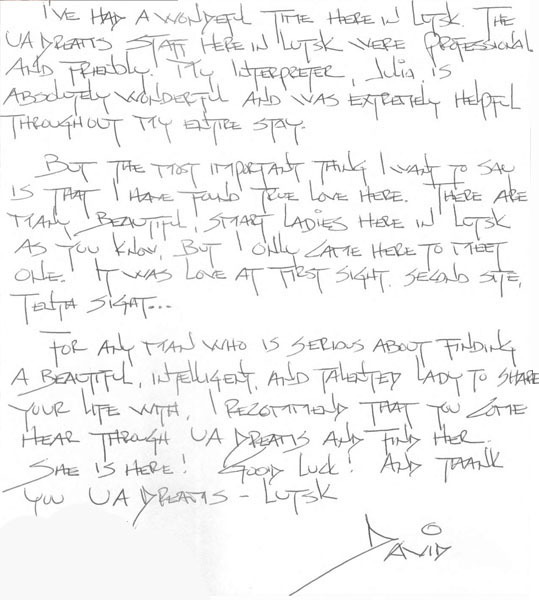 I'VE HAD A WONDEFUL TIME HERE IN LUTSK. THE
UA DREAMS STAFF HERE IN LUTSK WERE PROFESSIONAL
AND FRIENDLY. MY INTERPRETER, JULIA IS
ABSOLUTELY WONDERFUL AND WAS EXTREMELY HELPFUL
THROUGHOUT MY ENTIRE STAY.
BUT THE MOST IMPORTANT THING I WANT TO SAY
IS THAT I HAVE FOUND TRUE LOVE HERE. THERE ARE
MANY BEAUTIFUL, SMART LADIES HERE IN LUTSK
AS YOU KNOW, BUT I ONLY CAME HERE TO MEET
ONE. IT WAS LOVE AT FIRST SIGHT. SECOND SITE,
TENTH SIGHT...
FOR ANY MAN WHO IS SERIOUS ABOUT FINDING
A BEAUTIFUL, INTELLIGENT, AND TALENTED LADY TO SHARE
YOUR LIFE WITH, I RECOMMEND THAT YOU COME
HEAR THROUGH UA DREAMS AND FIND HER.
SHE IS HERE! GOOD LUCK! AND THANK
YOU UA DREAMS - LUTSK
DAVID